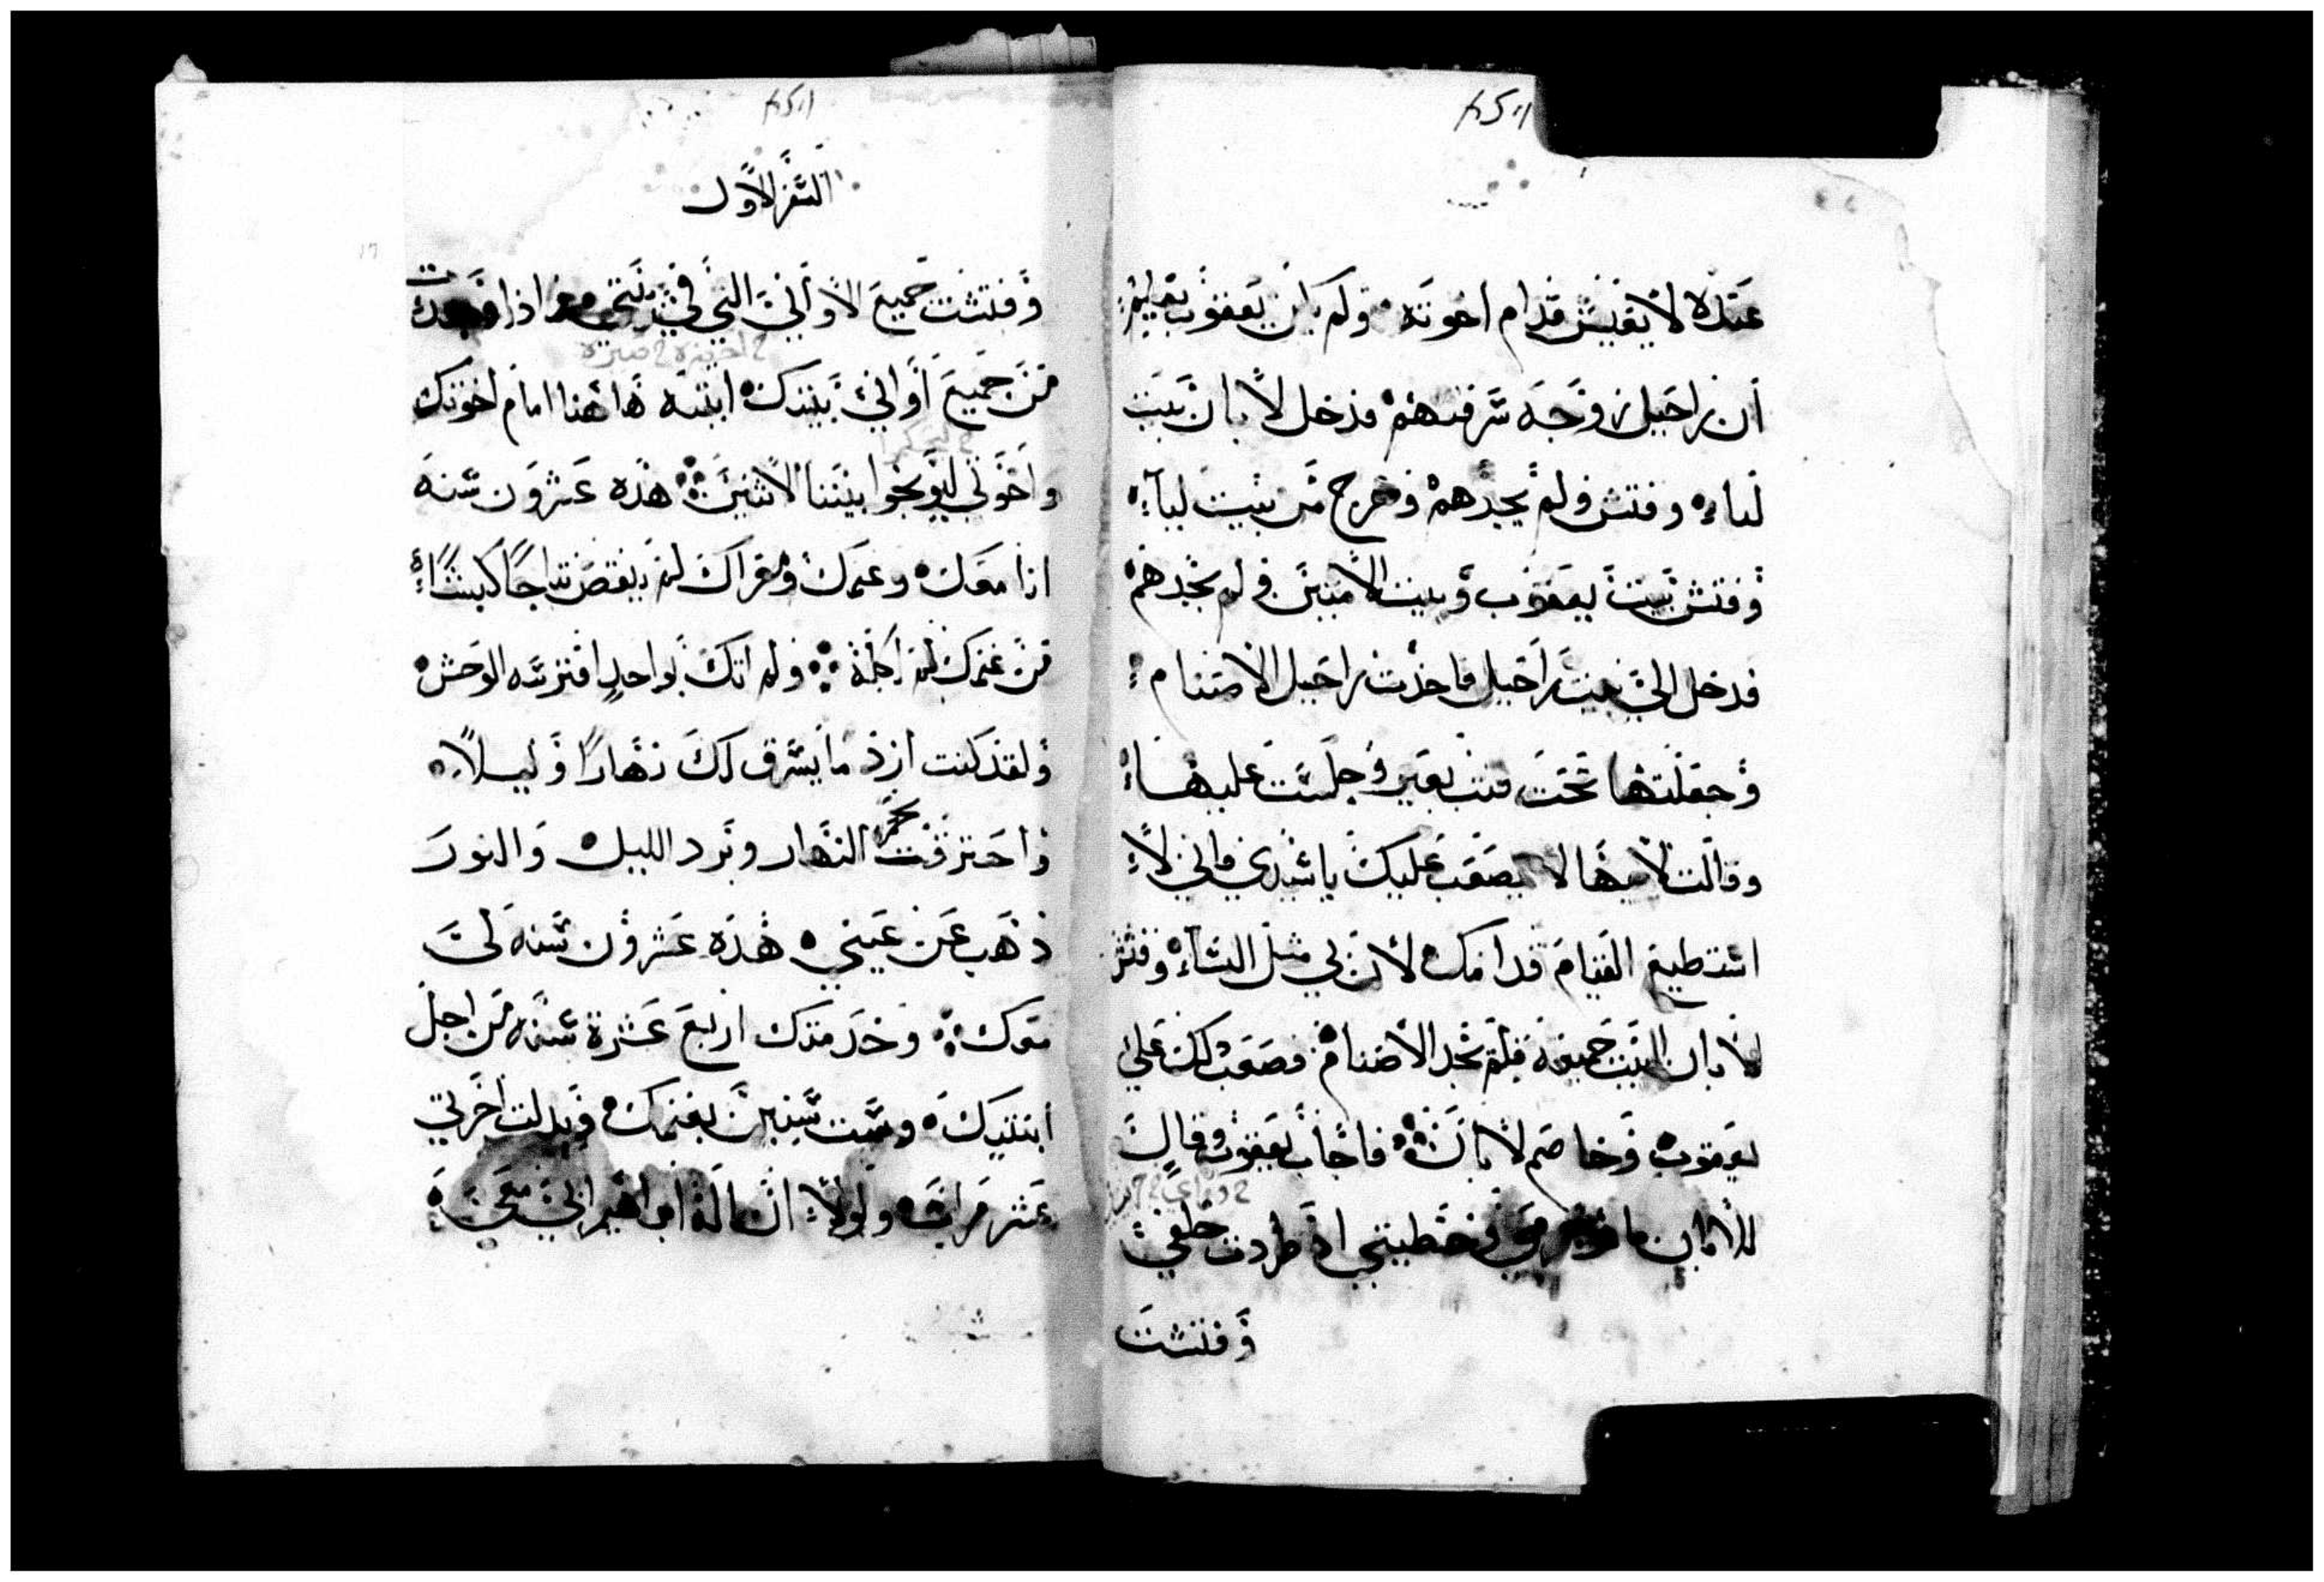 عنده لا يعيش قدام اخوته ولم يكن يعقوب يعلم
أن راحيل زوجه سرقتهم فدخل لابان بيت
لياء وفتش ولم يجدهم وخرج من بيت ليآء
وفتش بيت يعقوب وبيت الامتين ولم يجدهم
فدخل الي بيت راحيل فاخذت راحيل الاصنام
وجعلتها تحت قتب بعير وجلست عليها
وقالت لابيها لا يصعب عليك يا سيدي فاني لا
استطيع القيام قدامك لان بي مثل النسآء وفتش
لابان البيت جميعه فلم يجد الاصنام فصعب ذلك علي
يعقوب وخاصم لابان فاجاب يعقوب وقال
للابان ما هو جرمي وخطيتي اذ طردت خلفي
وفتشت
السفر الاول
وفتشت جميع الاواني التي في بيتي اذا وجدت
من جميع أواني بيتك اثبته هاهنا امام اخوتك
واخوتي ليوبخوا بيننا الاثنين هذه عشرون سنه
انا معك وغنمك ومعزاك لم ينقص نتاجا كبشًا
من غنمك لم اكله ولم اتك بواحدٍ افترسه الوحش
ولقد كنت ارد ما يسرق لك نهارًا وليلًا
واحترقت بحر النهار وبرد الليل والنور
ذهب عن عيني هذه عشرون سنه لي
معك وخدمتك اربع عشرة سنه من اجل
ابنتيك وست سنين بغنمك وبدلت اجرتي
عشر مرات ولولا ان اله ابراهيم ابي معي